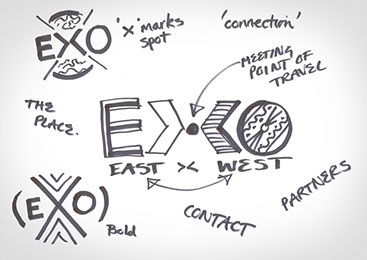 EXO
'x' marks
spot
'connection'
MEETING
POINT OF
TRAVEL
THE
PLACE.
EXO
EAST >< WEST
(EXO)
Bold
CONTACT
PARTNERS